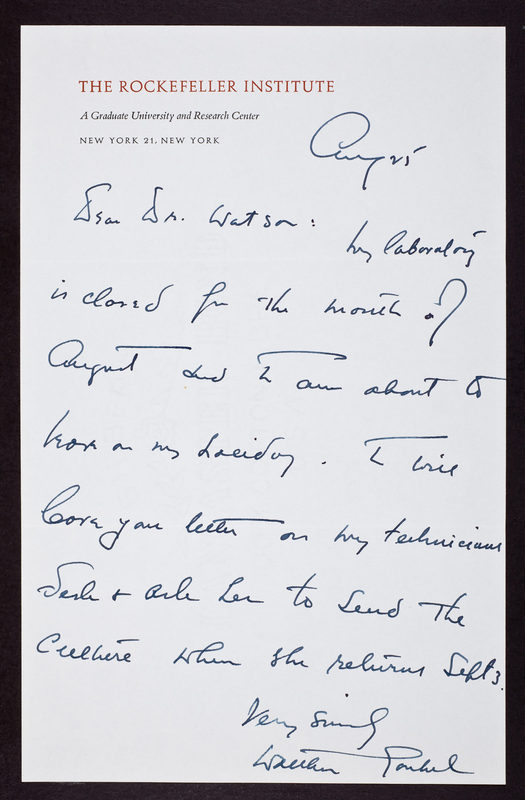 THE ROCKEFELLER INSTITUTE
A Graduate University and Research Center
NEW YORK 21, NEW YORK
Aug 25
Dear Dr. Watson:
My laboratory
is closed for the month of
August and I am about to
leave on my holiday. I will
leave your letter on my technicians
desk + ask her to send the
culture when she returns Sept 3.
Very sincerely
Walther